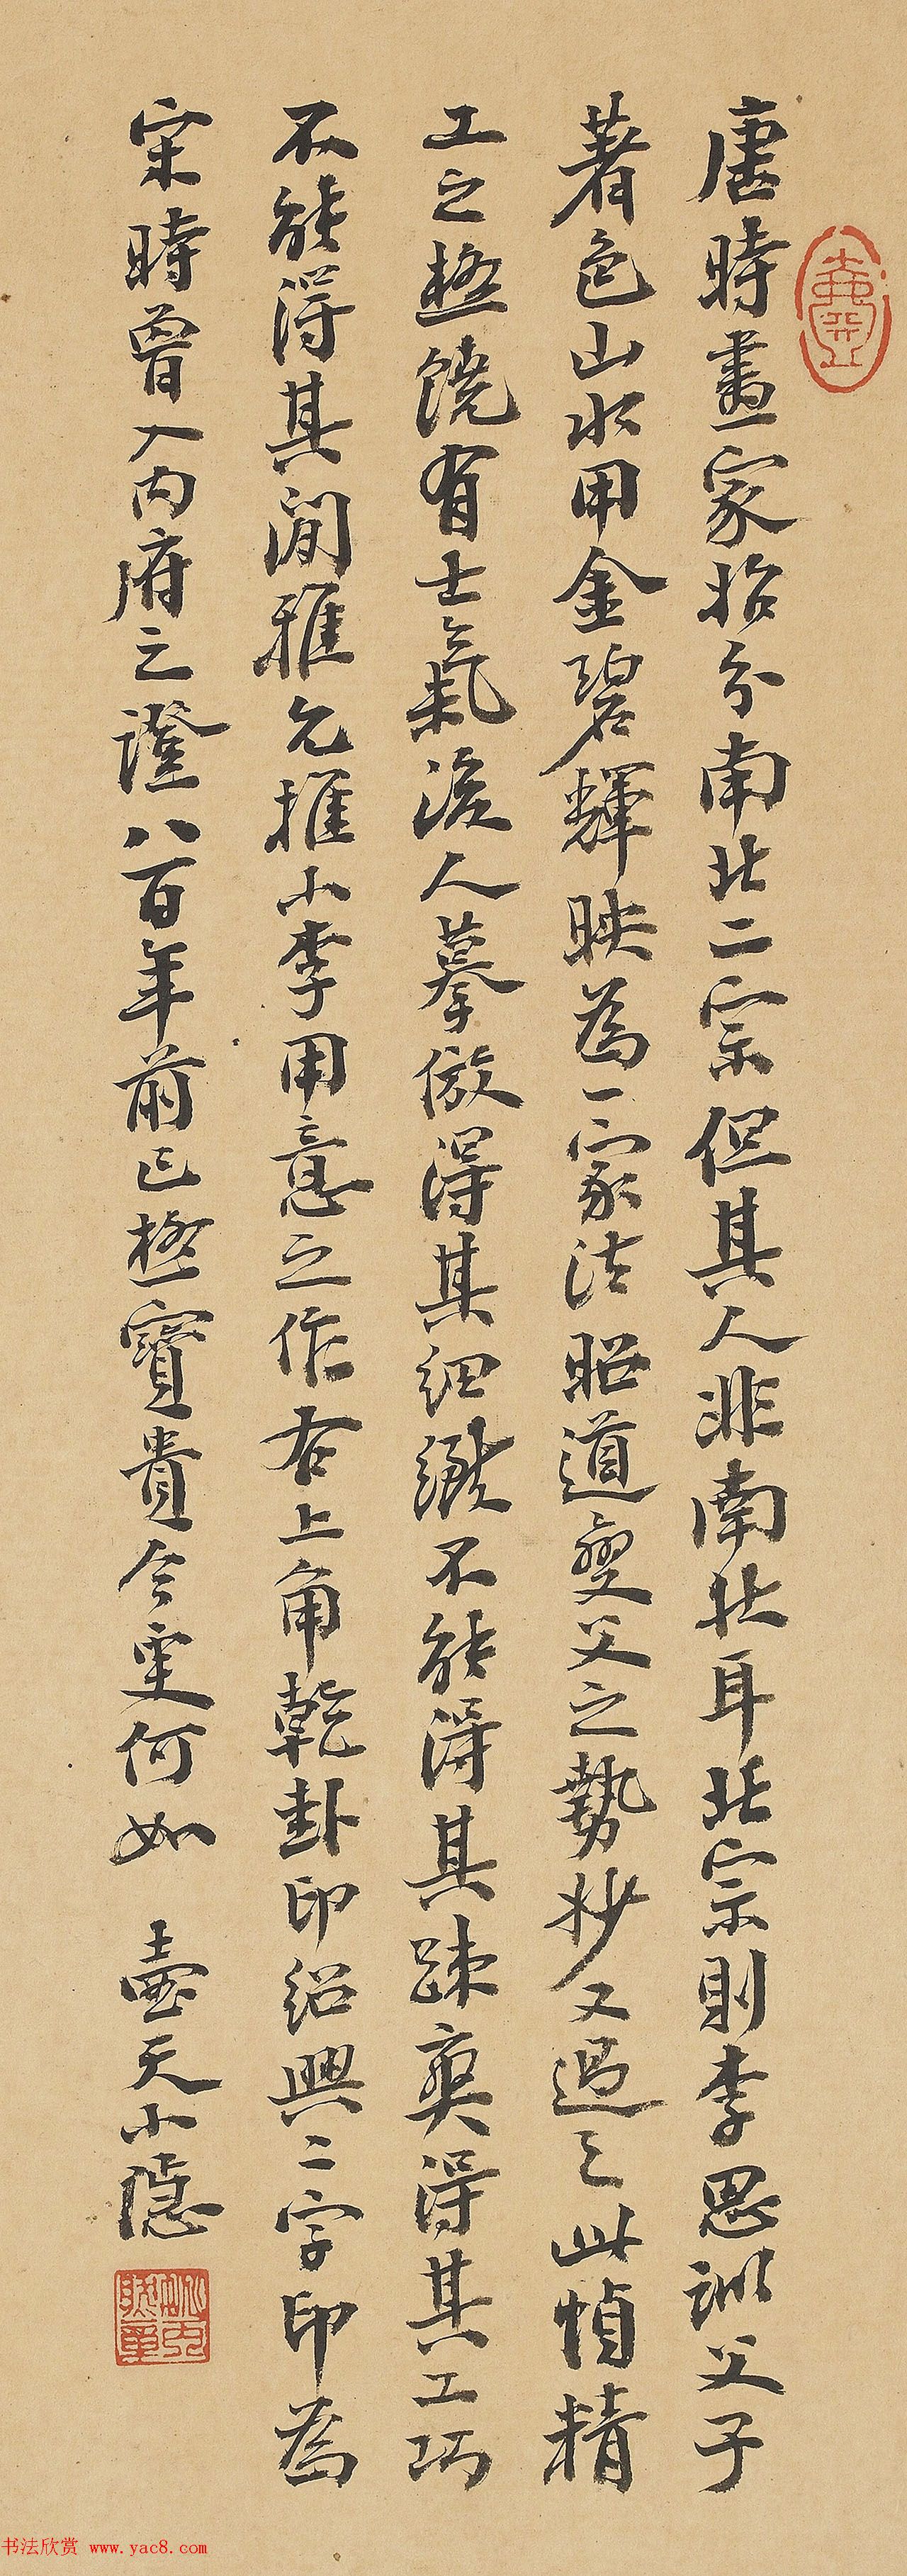 唐時畫家始分南北二宗但其人非南北耳北宗則李思訓父子
著色山水用金碧輝映為一家法昭道變父之勢妙又過之此幀精
工之極饒有士氣後人摹倣得其細緻不能得其疎爽得其工巧
不能得其閒雅允推小李用意之作右上角乾卦印紹興二字印為
宋時曾入內府之證八百年前已極寶貴今更何如 壺天小隱
书法欣赏 www.yac8.com